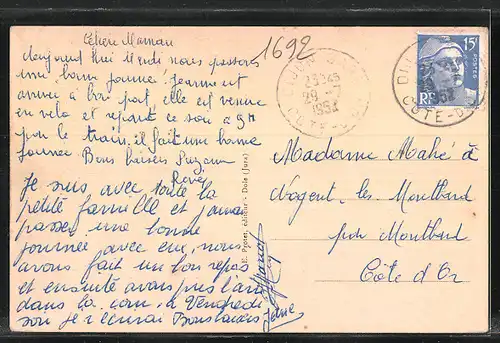 Chère Maman
1692
aujourd'hui Mardi nous passons
une bonne journée Jeannine est
arrivé a bon port, elle est venue
en velo et repart ce soir a 9H
par le train, il fait une bonne
journee Bons baisers
René
Je suis avec toute la
petite famille et j'aurai
passer une bonne
journée avec eux, nous
avons fait un bon repas
et ensuite avons pris l'air
dans la cour, a Vendredi
soir je t'ecrirai Bons baisers
E. Protet, éditeur - Dole (Jura)
DIJON
29 - 7
1952
COTE-D'OR
15F
POSTES
RF
DIJON
1952
COTE-D'OR
Madame Mahé à
Nogent les Montbard
par Montbard
Côte d'Or